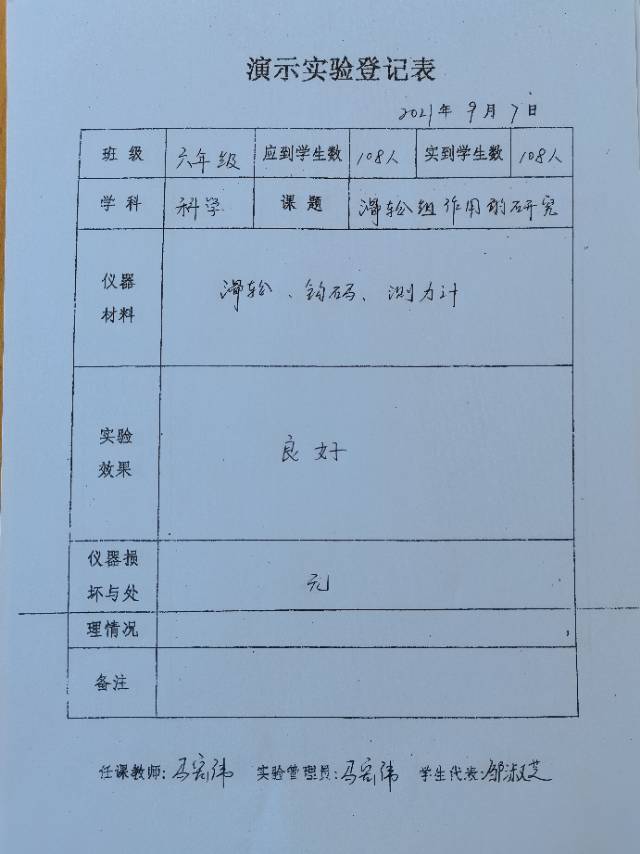 演示实验登记表
2021年 9月 7日
班级 六年级 应到学生数 108人 实到学生数 108人
学科 科学 课题 滑轮组作用的研究
仪器
材料
滑轮、钩码、测力计
实验
效果
良好
仪器损
坏与处
理情况
无
备注
任课教师:马宏伟 实验管理员:马宏伟 学生代表:邹淑芝